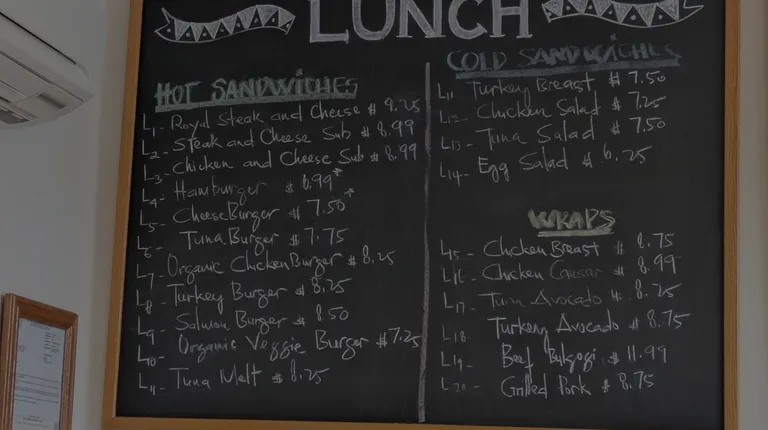 LUNCH
HOT SANDWICHES
L1- Royal Steak and Cheese $ 9.25
L2- Steak and Cheese Sub $ 8.99
L3- Chicken and Cheese Sub $ 8.99
L4- Hamburger $ 6.99*
L5- CheeseBurger $ 7.50*
L6- Tuna Burger $ 7.75
L7- Organic ChickenBurger $ 8.25
L8- Turkey Burger $ 8.25
L9- Salmon Burger $ 8.50
L10- Organic Veggie Burger $7.25
L11- Tuna Melt $ 8.25
COLD SANDWICHES
L11- Turkey Breast $ 7.50
L12- Chicken Salad $ 7.25
L13- Tuna Salad $ 7.50
L14- Egg Salad $ 6.25
WRAPS
L15- Chicken Breast $ 8.75
L16- Chicken Caesar $ 8.99
L17- Tuna Avocado $ 8.25
L18- Turkey Avocado $ 8.75
L19- Beef Bulgogi $ 11.99
L20- Grilled Pork $ 8.75